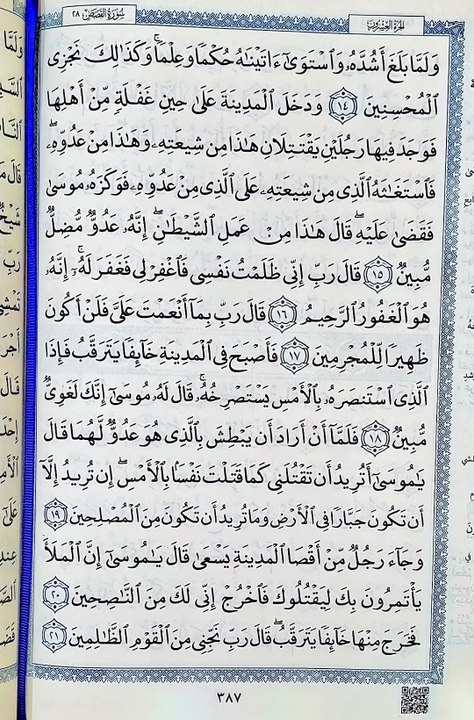 الجزء العشرون
سورة القصص ٢٨
وَلَمَّا بَلَغَ أَشُدَّهُۥ وَٱسْتَوَىٰٓ ءَاتَيْنَٰهُ حُكْمًا وَعِلْمًا ۚ وَكَذَٰلِكَ نَجْزِى
ٱلْمُحْسِنِينَ ١٤ وَدَخَلَ ٱلْمَدِينَةَ عَلَىٰ حِينِ غَفْلَةٍ مِّنْ أَهْلِهَا
فَوَجَدَ فِيهَا رَجُلَيْنِ يَقْتَتِلَانِ هَٰذَا مِن شِيعَتِهِۦ وَهَٰذَا مِنْ عَدُوِّهِۦ ۖ
فَٱسْتَغَٰثَهُ ٱلَّذِى مِن شِيعَتِهِۦ عَلَى ٱلَّذِى مِنْ عَدُوِّهِۦ فَوَكَزَهُۥ مُوسَىٰ
فَقَضَىٰ عَلَيْهِ ۖ قَالَ هَٰذَا مِنْ عَمَلِ ٱلشَّيْطَٰنِ ۖ إِنَّهُۥ عَدُوٌّ مُّضِلٌّ
مُّبِينٌ ١٥ قَالَ رَبِّ إِنِّى ظَلَمْتُ نَفْسِى فَٱغْفِرْ لِى فَغَفَرَ لَهُۥٓ ۚ إِنَّهُۥ
هُوَ ٱلْغَفُورُ ٱلرَّحِيمُ ١٦ قَالَ رَبِّ بِمَآ أَنْعَمْتَ عَلَىَّ فَلَنْ أَكُونَ
ظَهِيرًا لِّلْمُجْرِمِينَ ١٧ فَأَصْبَحَ فِى ٱلْمَدِينَةِ خَآئِفًا يَتَرَقَّبُ فَإِذَا
ٱلَّذِى ٱسْتَنصَرَهُۥ بِٱلْأَمْسِ يَسْتَصْرِخُهُۥ ۚ قَالَ لَهُۥ مُوسَىٰٓ إِنَّكَ لَغَوِىٌّ
مُّبِينٌ ١٨ فَلَمَّآ أَنْ أَرَادَ أَن يَبْطِشَ بِٱلَّذِى هُوَ عَدُوٌّ لَّهُمَا قَالَ
يَٰمُوسَىٰٓ أَتُرِيدُ أَن تَقْتُلَنِى كَمَا قَتَلْتَ نَفْسًۢا بِٱلْأَمْسِ ۖ إِن تُرِيدُ إِلَّآ
أَن تَكُونَ جَبَّارًا فِى ٱلْأَرْضِ وَمَا تُرِيدُ أَن تَكُونَ مِنَ ٱلْمُصْلِحِينَ ١٩
وَجَآءَ رَجُلٌ مِّنْ أَقْصَا ٱلْمَدِينَةِ يَسْعَىٰ قَالَ يَٰمُوسَىٰٓ إِنَّ ٱلْمَلَأَ
يَأْتَمِرُونَ بِكَ لِيَقْتُلُوكَ فَٱخْرُجْ إِنِّى لَكَ مِنَ ٱلنَّٰصِحِينَ ٢٠
فَخَرَجَ مِنْهَا خَآئِفًا يَتَرَقَّبُ ۖ قَالَ رَبِّ نَجِّنِى مِنَ ٱلْقَوْمِ ٱلظَّٰلِمِينَ ٢١
٣٨٧